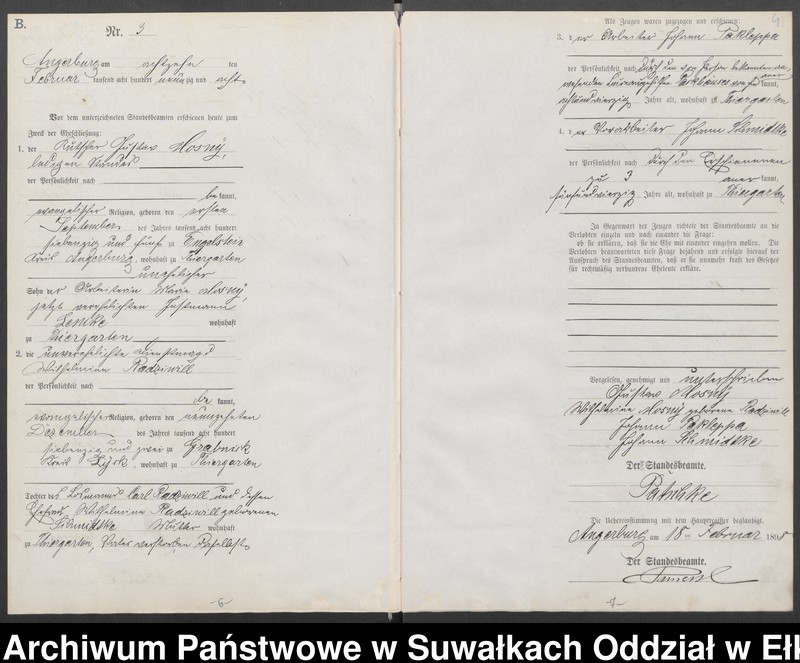 B.
Nr. 3
Angerburg am achtzehn ten
Februar tausend acht hundert neunzig und acht
Vor dem unterzeichneten Standesbeamten erschienen heute zum
Zweck der Eheschließung:
1. der Kutscher Gustav Mosny,
ledigen Standes
der Persönlichkeit nach
be kannt,
evangelischer Religion, geboren den ersten
September des Jahres tausend acht hundert
siebenzig und fünf zu Engelstein
Kreis Angerburg, wohnhaft zu Thiergarten
unehelicher
Sohn der Arbeiterin Marie Mosny,
jetzt verehelichten Instmann
Lemke wohnhaft
zu Thiergarten
2. die unverehelichte Dienstmagd
Wilhelmine Radziwill
der Persönlichkeit nach
be kannt,
evangelischer Religion, geboren den neunzehnten
Dezember des Jahres tausend acht hundert
siebenzig und zwei zu Grabnick
Kreis Lyck, wohnhaft zu Thiergarten
Tochter des Losmanns Carl Radziwill und dessen
Ehefrau Wilhelmine Radziwill geborenen
Schmidtke Mutter wohnhaft
zu Thiergarten, Vater verstorben
-6-
4
Als Zeugen waren zugezogen und erschienen:
3. der Arbeiter Johann Pakleppa
der Persönlichkeit nach durch den von Person bekannten
kannt,
achtundvierzig Jahre alt, wohnhaft zu Thiergarten
4. der Vorarbeiter Johann Schmidtke
der Persönlichkeit nach durch den Erschienenen
zu 3 aner kannt,
fünfundvierzig Jahre alt, wohnhaft zu Thiergarten
In Gegenwart der Zeugen richtete der Standesbeamte an die
Verlobten einzeln und nach einander die Frage:
ob sie erklären, daß sie die Ehe mit einander eingehen wollen. Die
Verlobten beantworteten diese Frage bejahend und erfolgte hierauf der
Ausspruch des Standesbeamten, daß er sie nunmehr kraft des Gesetzes
für rechtmäßig verbundene Eheleute erkläre.
Vorgelesen, genehmigt und unterschrieben
Gustav Mosny
Wilhelmine Mosny geborene Radziwill
Johann Pakleppa
Johann Schmidtke
Der Standesbeamte.
Patschke
Die Uebereinstimmung mit dem Hauptregister beglaubigt.
Angerburg am 18ten Februar 1898
Der Standesbeamte.
-7-
Archiwum Państwowe w Suwałkach Oddział w Ełk